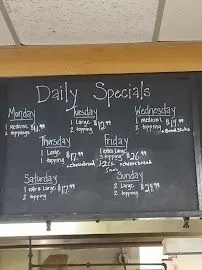 Daily Specials
Monday
1 Medium
2 topping
Tuesday
1 Large
2 topping $12.99
Wednesday
1 medium
2 topping $14.99
+ Breadsticks
Thursday
1 Large
2 topping $17.99
+ cheesebread
Friday
1 extra Large
3 topping $26.99
+ cheesebread
Saturday
1 extra Large
2 topping $17.99
Sunday
2 Large
2 topping $24.99